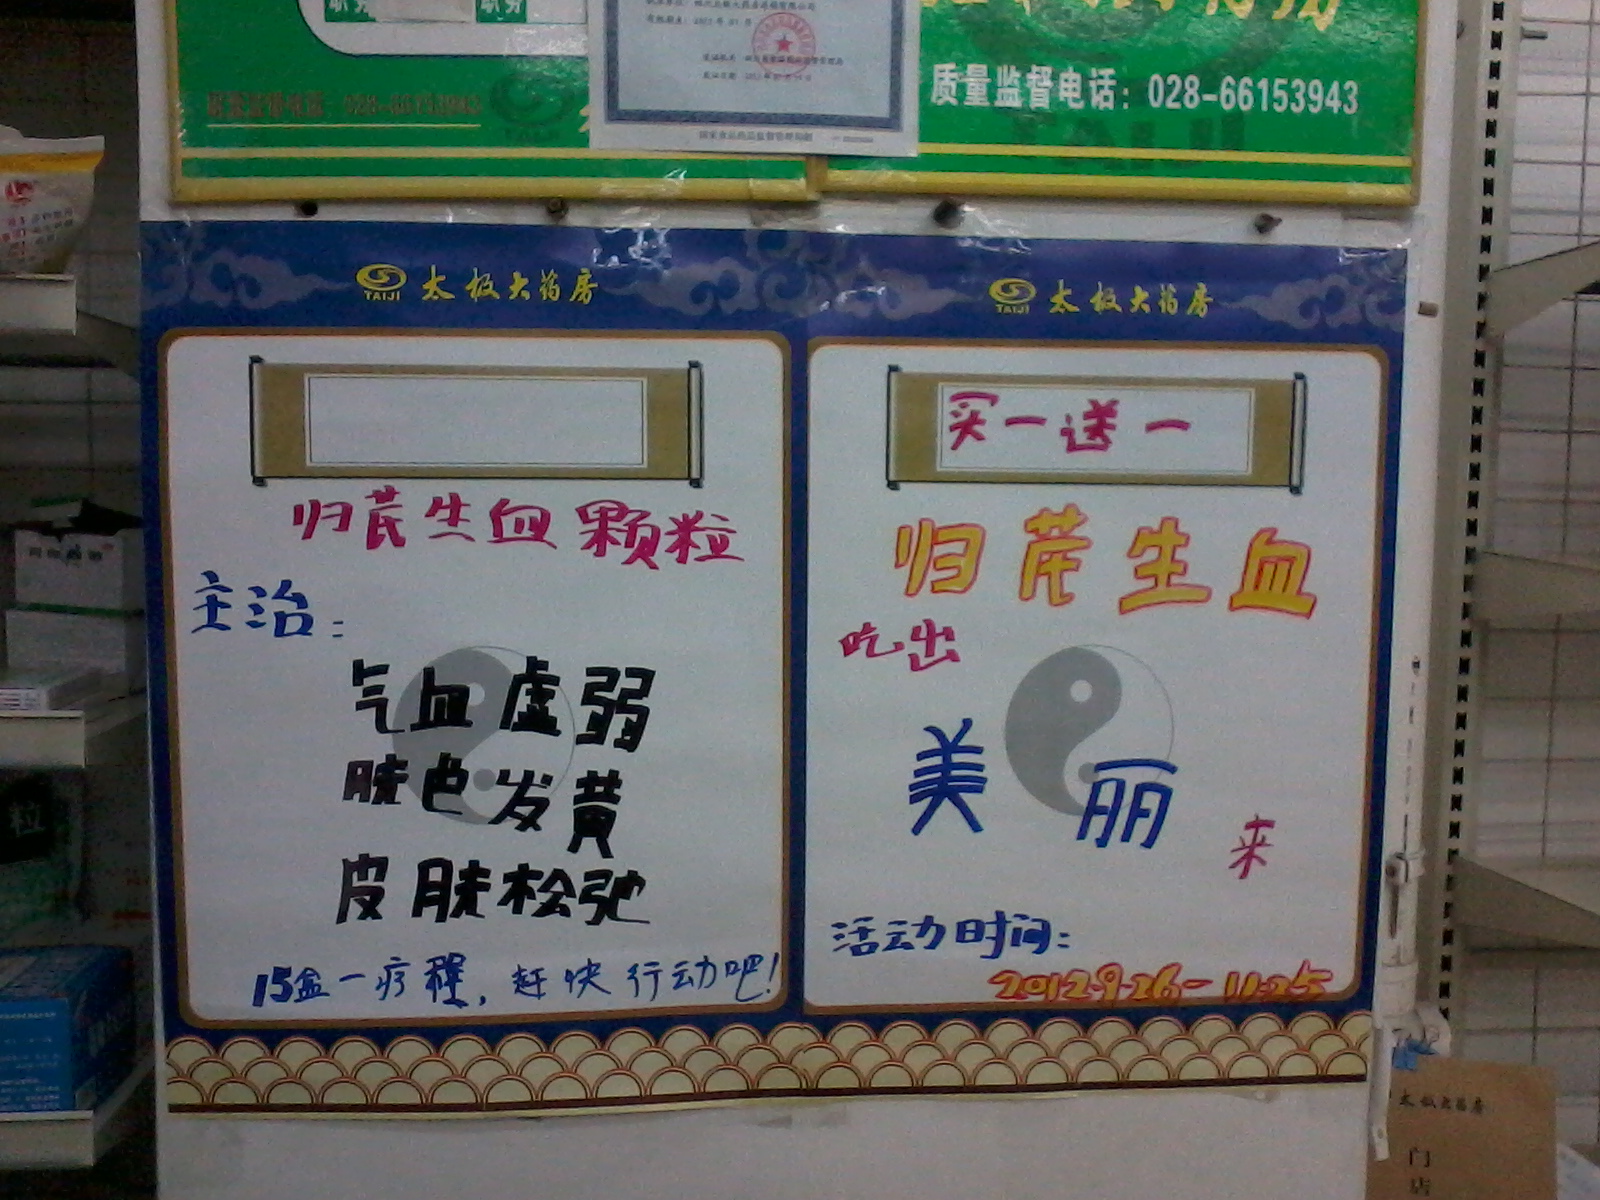 质量监督电话：028-66153943
国家食品药品监督管理局制
TAIJI 太极大药房
归芪生血颗粒
主治：
气血虚弱
肤色发黄
皮肤松弛
15盒一疗程，赶快行动吧！
TAIJI 太极大药房
买一送一
归芪生血
吃出
美丽
来
活动时间：
2012.9.26-11.25
太极大药房
门店
粒